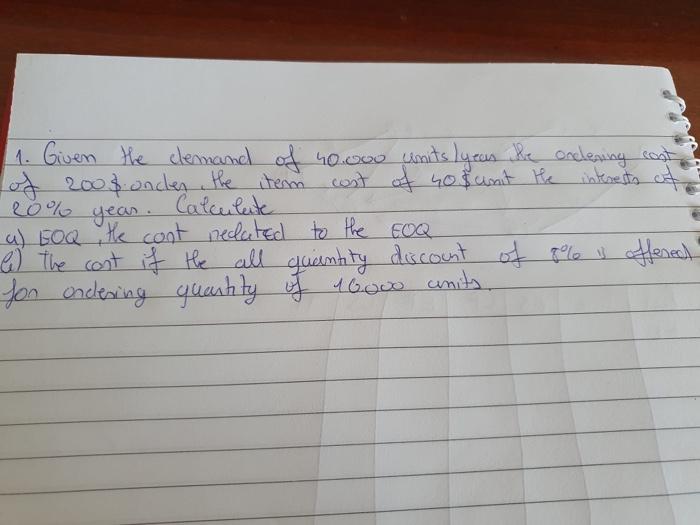 1. Given the demand of 40.000 units/year the ordering cost
of 200$ order, the item cost of 40$ unit the interests of
20% year. Calculate
a) EOQ, the cost related to the EOQ
b) The cost if the all quantity discount of 8% is offered
for ordering quantity of 10000 units.